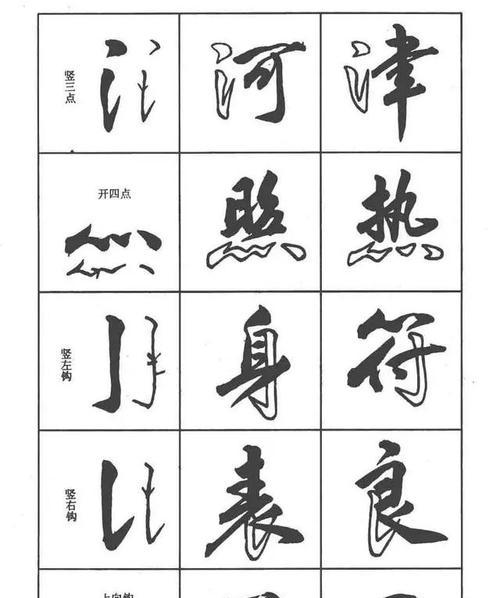 竖三点 河 津
开四点 照 热
竖左钩 身 符
竖右钩 表 良
上向钩